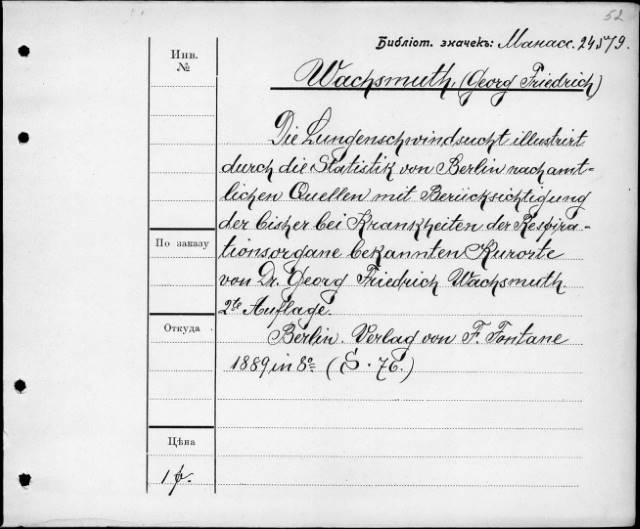 52
Библіот. значекъ: Манасс. 24579.
Инв.
№
Wachsmuth, (Georg Friedrich)
Die Lungenschwindsucht illustrirt
durch die Statistik von Berlin nach amt-
lichen Quellen mit Berücksichtigung
der bisher bei Krankheiten der Respira-
tionsorgane bekannten Kurorte
von Dr. Georg Friedrich Wachsmuth.
2te Auflage.
Berlin. Verlag von F. Fontane
1889 in 8o (S. 76.)
По заказу
Откуда
Цѣна
1 р.